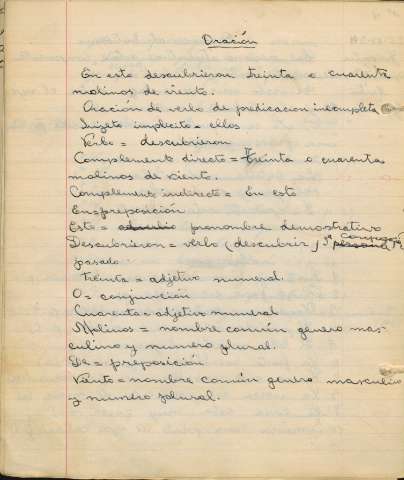 Oración
En esto descubrieron treinta o cuarenta
molinos de viento.
Oración de verbo de predicacion incompleta
Sujeto implicito = ellos
Verbo = descubrieron
Complemento directo = Treinta o cuarenta
molinos de viento.
Complemento indirecto = En esto
En = preposición
Esto = pronombre demostrativo
Descubrieron = verbo (descubrir) 3ª
pasado.
Treinta = adjetivo numeral.
O = conjunción
Cuarenta = adjetivo numeral
Molinos = nombre común genero mas-
culino y numero plural.
De = preposición
Viento = nombre común genero masculino
y numero plural.